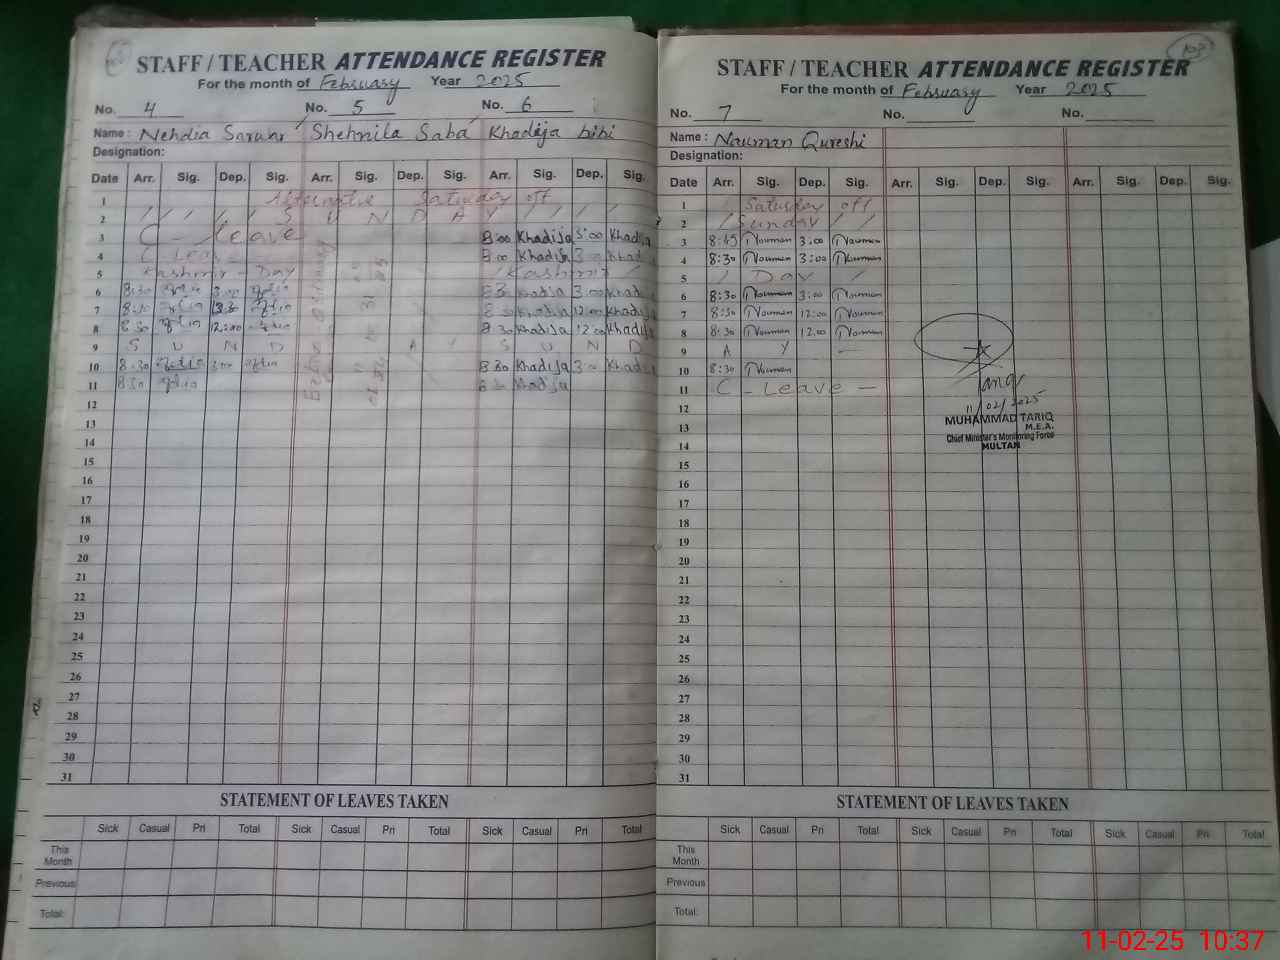 STAFF / TEACHER ATTENDANCE REGISTER
For the month of February Year 2025
No. 4 No. 5 No. 6
Name : Nehdia Sarwar Shehnila Saba Khadija bibi
Designation:
Date Arr. Sig. Dep. Sig. Arr. Sig. Dep. Sig. Arr. Sig. Dep. Sig.
1 Alternative Saturday off
2 S U N D A Y
3 C - leave 8:00 Khadija 3:00 Khadija
4 C Leave 8:00 Khadija 3:00 Khadija
5 Kashmir - Day Kashmir
6 8:30 3:00 8:30 Khadija 3:00 Khadija
7 8:30 8:30 Khadija 12:00 Khadija
8 8:30 12:00 8:30 Khadija 12:00 Khadija
9 S U N D A Y S U N D
10 8:30 3:00 8:30 Khadija 3:00 Khadija
11 8:30 8:30 Khadija
12
13
14
15
16
17
18
19
20
21
22
23
24
25
26
27
28
29
30
31
STATEMENT OF LEAVES TAKEN
Sick Casual Pri Total Sick Casual Pri Total Sick Casual Pri Total
This Month
Previous
Total:
103
STAFF / TEACHER ATTENDANCE REGISTER
For the month of February Year 2025
No. 7 No. No.
Name : Nauman Qureshi
Designation:
Date Arr. Sig. Dep. Sig. Arr. Sig. Dep. Sig. Arr. Sig. Dep. Sig.
1 Saturday off
2 Sunday
3 8:45 Nauman 3:00 Nauman
4 8:30 Nauman 3:00 Nauman
5 Day
6 8:30 Nauman 3:00 Nauman
7 8:30 Nauman 12:00 Nauman
8 8:30 Nauman 12:00 Nauman
9 A Y
10 8:30 Nauman
11 C - Leave -
11/02/2025
12
MUHAMMAD TARIQ
M.E.A.
13
Chief Minister's Monitoring Force
MULTAN
14
15
16
17
18
19
20
21
22
23
24
25
26
27
28
29
30
31
STATEMENT OF LEAVES TAKEN
Sick Casual Pri Total Sick Casual Pri Total Sick Casual Pri Total
This Month
Previous
Total:
11-02-25 10:37